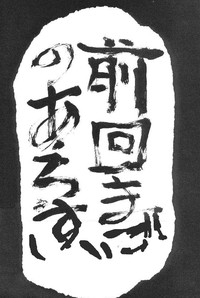 前回まで
のあらすじ